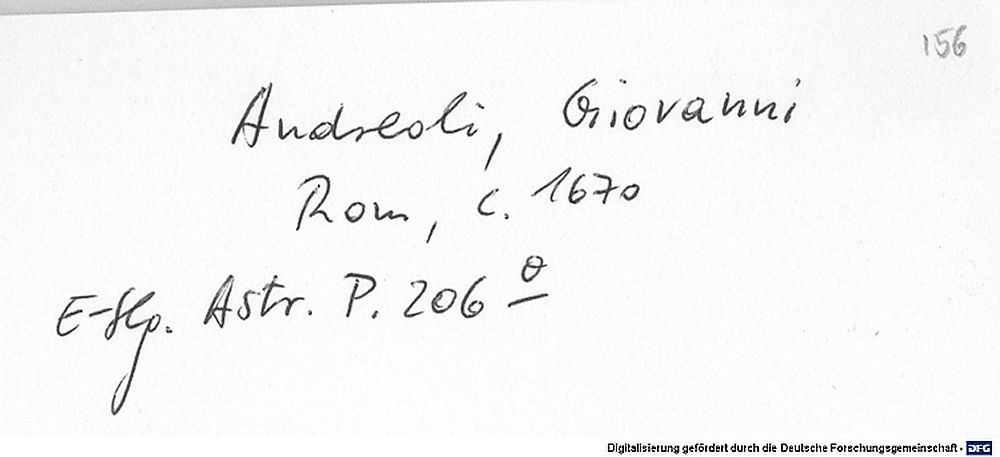 156
Andreoli, Giovanni
Rom, c. 1670
Astr. P. 206 o
Digitalisierung gefördert durch die Deutsche Forschungsgemeinschaft - DFG